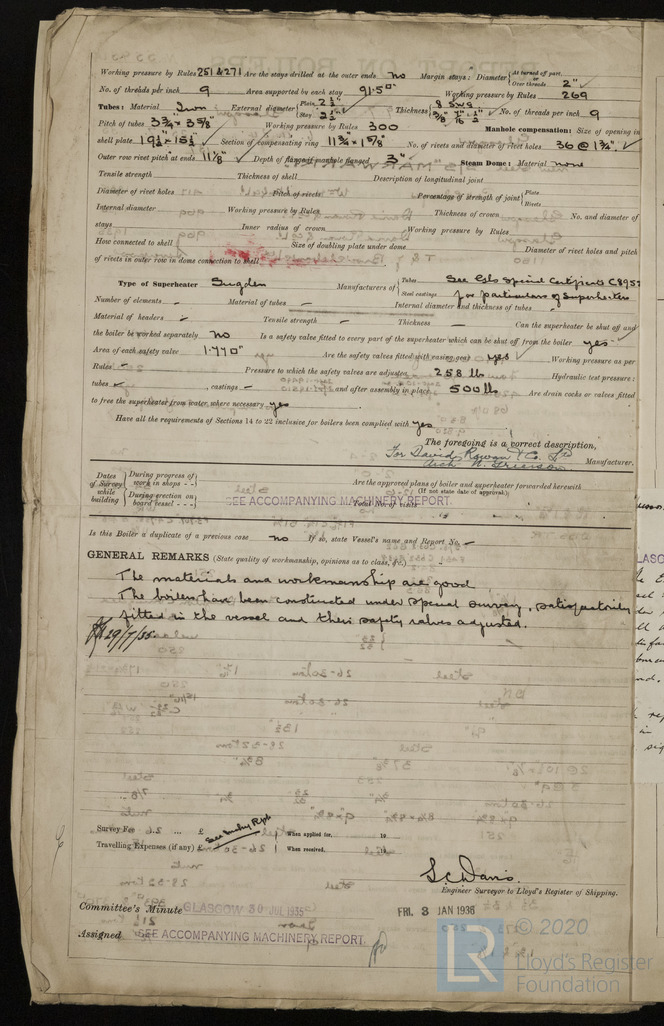 Working pressure by Rules 251 & 271 Are the stays drilled at the outer ends no Margin stays: Diameter { At turned off part, or Over threads 2"
No. of threads per inch 9 Area supported by each stay 91.50" Working pressure by Rules 269
Tubes: Material Iron External diameter { Plain 2½" Stay 2½" Thickness { 8 SWG No. of threads per inch 9
Pitch of tubes 3¾" x 3⅝" Working pressure by Rules 300 Manhole compensation: Size of opening in
shell plate 19½" x 15½" Section of compensating ring 11¾ x 1⅝" No. of rivets and diameter of rivet holes 36 @ 1¾".
Outer row rivet pitch at ends 11⅛" Depth of flange if manhole flanged 3" Steam Dome: Material none
Tensile strength Thickness of shell Description of longitudinal joint
Diameter of rivet holes Pitch of rivets Percentage of strength of joint { Plate Rivets
Internal diameter Working pressure by Rules Thickness of crown No. and diameter of
stays Inner radius of crown Working pressure by Rules
How connected to shell Size of doubling plate under dome Diameter of rivet holes and pitch
of rivets in outer row in dome connection to shell
Type of Superheater Sugden Manufacturers of { Tubes See Gls Special Certificate C8957
Steel castings for particulars of Superheaters
Number of elements – Material of tubes – Internal diameter and thickness of tubes –
Material of headers – Tensile strength – Thickness – Can the superheater be shut off and
the boiler be worked separately no Is a safety valve fitted to every part of the superheater which can be shut off from the boiler yes
Area of each safety valve 1.770" Are the safety valves fitted with easing gear yes Working pressure as per
Rules – Pressure to which the safety valves are adjusted 258 lb Hydraulic test pressure:
tubes , castings – and after assembly in place 500 lb Are drain cocks or valves fitted
to free the superheater from water where necessary yes
Have all the requirements of Sections 14 to 22 inclusive for boilers been complied with yes
The foregoing is a correct description,
For David Rowan & Co. Ld
Arch W. Grierson Manufacturer.
Dates of Survey while building { During progress of work in shops - - During erection on board vessel - - -
Are the approved plans of boiler and superheater forwarded herewith
(If not state date of approval).
SEE ACCOMPANYING MACHINERY REPORT. Total No. of visits
Is this Boiler a duplicate of a previous case no If so, state Vessel's name and Report No. –
GENERAL REMARKS (State quality of workmanship, opinions as to class, &c.)
The materials and workmanship are good
The boilers have been constructed under special survey, satisfactorily
fitted in the vessel and their safety valves adjusted.
29/7/35
Survey Fee ... ... £ See Mchy Rpt When applied for, 19
Travelling Expenses (if any) £ When received, 19
S C Davis.
Engineer Surveyor to Lloyd's Register of Shipping.
Committee's Minute GLASGOW 30 JUL 1935 FRI. 3 JAN 1936
Assigned SEE ACCOMPANYING MACHINERY REPORT.
LR © 2020
Lloyd's Register
Foundation